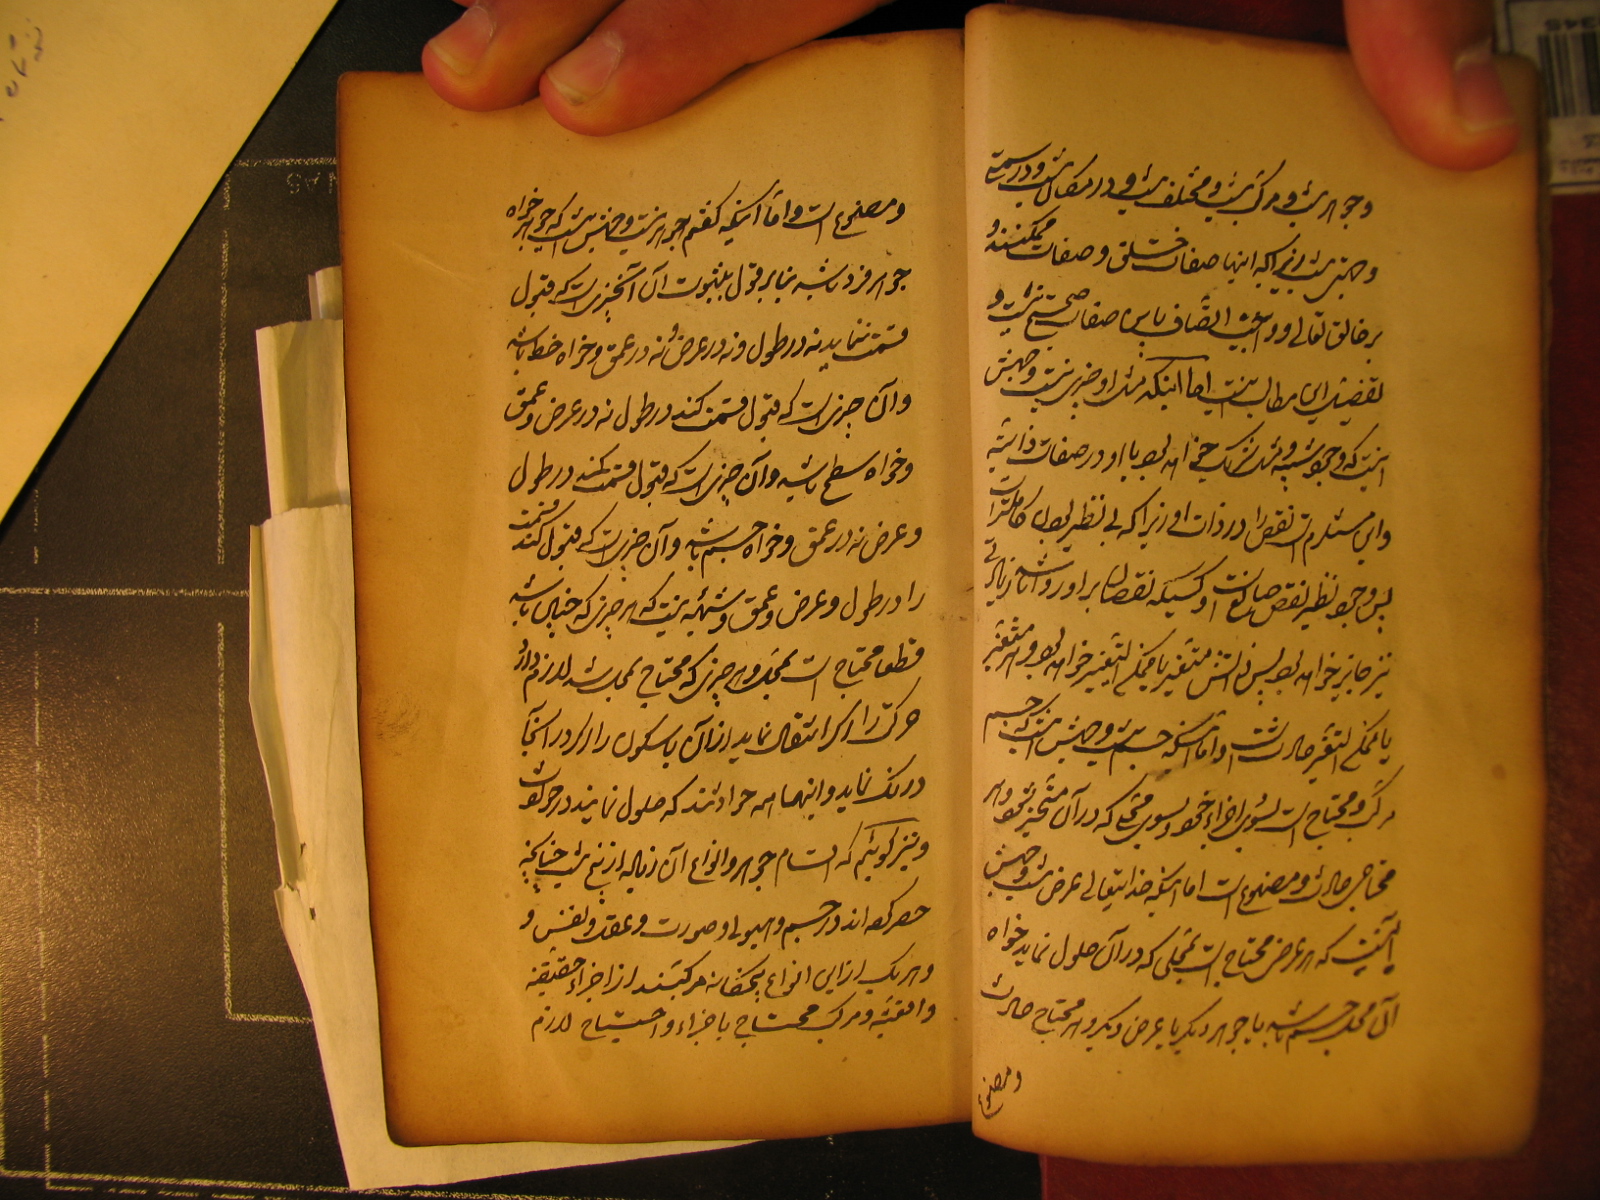 و جوهر نیست و مرکب نیست و مختلف نیست و در مکان نیست و در سمت
و جهتی نیست زیرا که اینها صفات خلق و صفات ممکنند و
بر خالق تعالی و واجب اتصاف باین صفات صحیح نیست و
تفصیل این مطالب اینست اما اینکه مثل او چیزی نیست و جهتش
اینست که وجود شبیه و مثل شریک خواهد بود با او در صفات ذاتیه
و این مستلزم است نقص را در ذات او زیرا که بی نظیر بودن کاملتر است
پس وجود نظیر نقص صانع است و کسیکه نقصان بر او روا باشد زیادتی
نیز جایز خواهد بود پس ذاتش متغیر یا ممکن التغیر خواهد بود و هر متغیر
یا ممکن التغیر حادث است و اما اینکه جسم نیست و جهتش اینست که جسم
مرکب و محتاج است بسوی اجزاء خود و بسوی محلی که در آن متحیز شود و هر
محتاجی حادث و مصنوع است اما اینکه خدایتعالی عرض نیست و جهتش
اینست که هر عرض محتاج است بمحلی که در آن حلول نماید خواه
آن محل جسم باشد یا جوهر دیگر یا عرض دیگر و هر محتاج حادث
و مصنوع
و مصنوع است و اما اینکه گفتم جوهر نیست و جهتش اینست که جوهر خواه
جوهر فرد باشد بنا بر قول بثبوت آن آنچیزیست که قبول
قسمت ننماید نه در طول و نه در عرض و نه در عمق و خواه خط باشد
و آن چیزیست که قبول قسمت کند در طول نه در عرض و عمق
و خواه سطح باشد و آن چیزیست که قبول قسمت کند در طول
و عرض نه در عمق و خواه جسم باشد و آن چیزیست که قبول کند قسمت
را در طول و عرض و عمق و شبهه نیست که هر چیزی که چنین باشد
قطعا محتاج است بمحل و هر چیزی که محتاج بمحل باشد لازم دارد
حرکت را اگر انتقال نماید از آن یا سکون را اگر در آنجا
درنگ نماید و اینها همه حوادثند که حلول نمایند در حوادث
و نیز گوئیم که اقسام جوهر و انواع آن زیاده از پنج نیست چنانچه
حصر کرده اند در جسم و هیولی و صورت و عقل و نفس و
و هر یک از این انواع پنجگانه مرکبند از اجزاء حقیقیه
واقعیه و مرکب محتاج باجزاء و احتیاج لازم